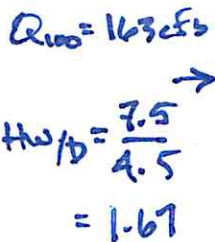 Q100 = 163cfs
→
HW/D = 7.5
4.5
= 1.67